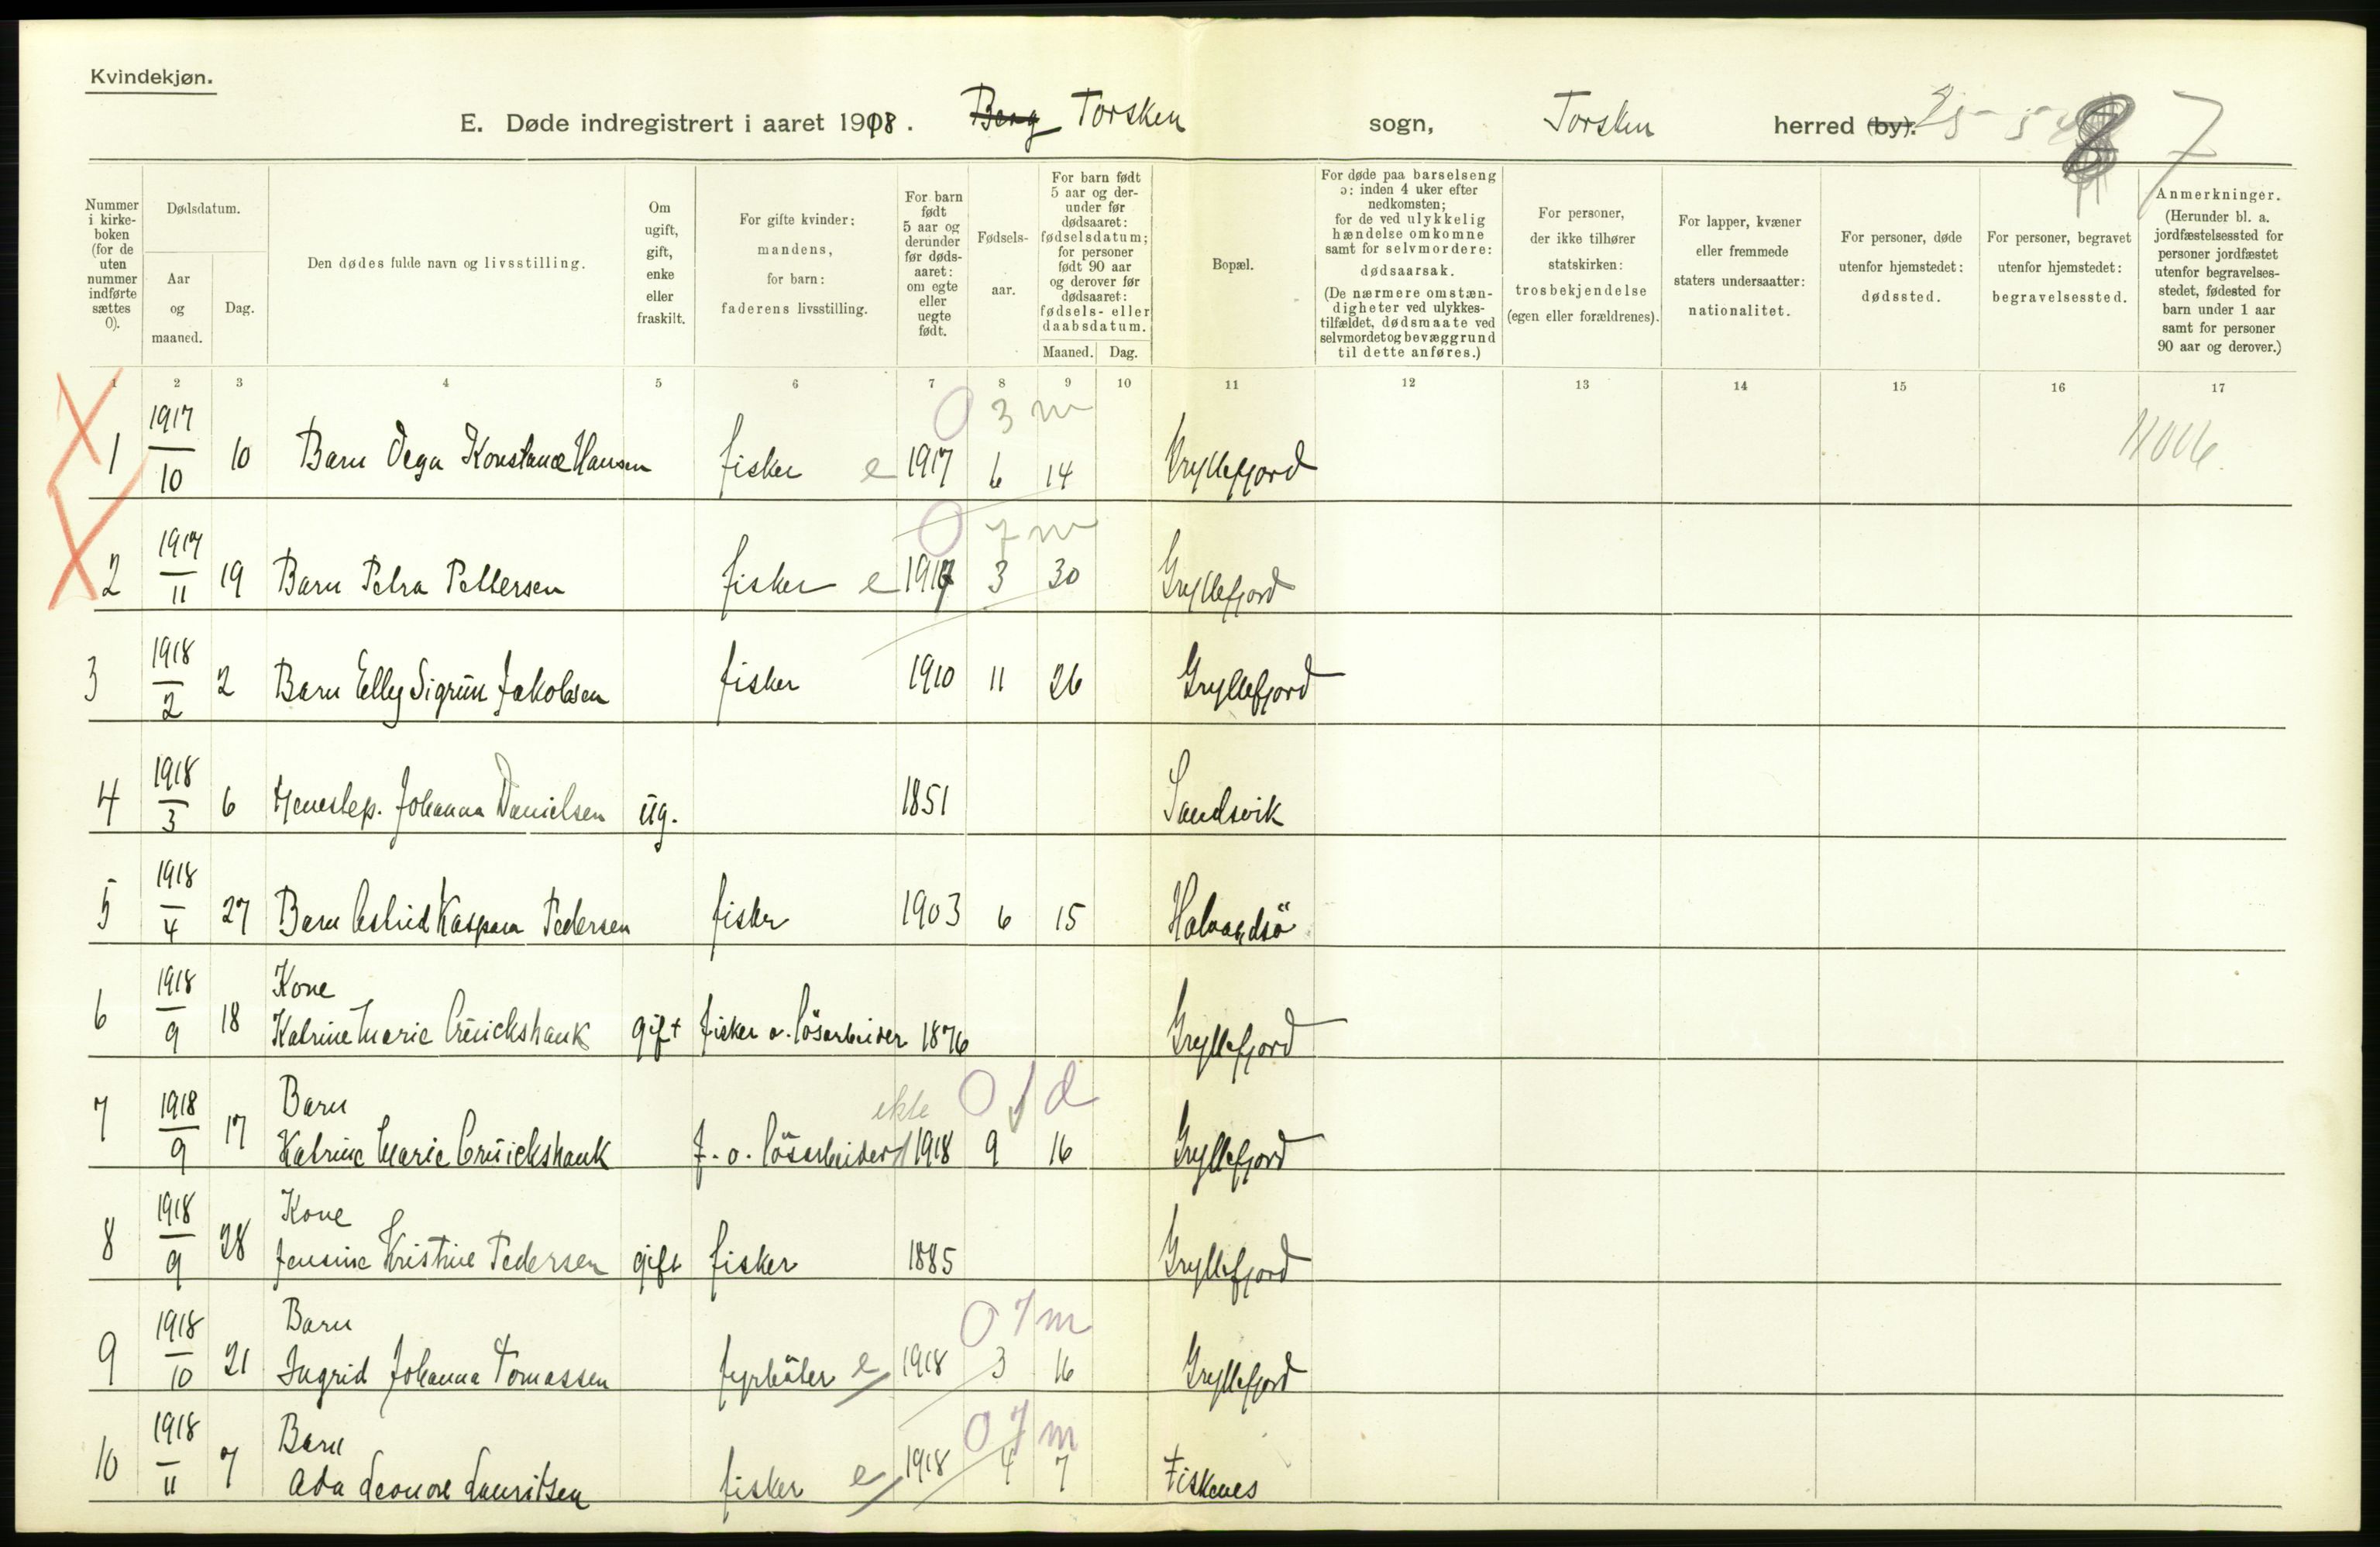 Kvindekjøn.
E. Døde indregistrert i aaret 1918. Berg Torsken sogn, Torsken herred (by). 25-5 8 7
Nummer i kirke-boken (for de uten nummer indførte sættes 0).
Dødsdatum.
Aar og maaned.
Dag.
Den dødes fulde navn og livsstilling.
Om ugift, gift, enke eller fraskilt.
For gifte kvinder: mandens, for barn: faderens livsstilling.
For barn født 5 aar og derunder før døds-aaret: om egte eller uegte født.
Fødsels-aar.
For barn født 5 aar og der-under før dødsaaret: fødselsdatum; for personer født 90 aar og derover før dødsaaret: fødsels- eller daabsdatum.
Maaned. Dag.
Bopæl.
For døde paa barselseng ɔ: inden 4 uker efter nedkomsten; for de ved ulykkelig hændelse omkomne samt for selvmordere: dødsaarsak. (De nærmere omstæn-digheter ved ulykkes-tilfældet, dødsmaate ved selvmordet og bevæggrund til dette anføres.)
For personer, der ikke tilhører statskirken: trosbekjendelse (egen eller forældrenes).
For lapper, kvæner eller fremmede staters undersaatter: nationalitet.
For personer, døde utenfor hjemstedet: dødssted.
For personer, begravet utenfor hjemstedet: begravelsessted.
Anmerkninger. (Herunder bl. a. jordfæstelsessted for personer jordfæstet utenfor begravelses-stedet, fødested for barn under 1 aar samt for personer 90 aar og derover.)
1 2 3 4 5 6 7 8 9 10 11 12 13 14 15 16 17
0 3 m
1 1917/10 10 Barn Dega Konstance Hansen fisker e 1917 6 14 Gryllefjord
0 7 m
2 1917/11 19 Barn Petra Pettersen fisker e 1917 3 30 Gryllefjord
3 1918/2 2 Barn Elly Sigrun Jakobsen fisker 1910 11 26 Gryllefjord
4 1918/3 6 tjenestep. Johanna Danielsen ug. 1851 Sandsvik
5 1918/4 27 Barn Astrid Kaspara Pedersen fisker 1903 6 15
6 1918/9 18 Kone
Katrine Marie Cruickshank gift fisker o. løsarbeider 1876 Gryllefjord
ekte 0 1 d
7 1918/9 17 Barn
Katrine Marie Cruickshank f. o. løsarbeider 1918 9 16 Gryllefjord
8 1918/9 28 Kone
Jensine Kristine Pedersen gift fisker 1885 Gryllefjord
0 7 m
9 1918/10 21 Barn
Ingrid Johanna Tomassen fyrbøter e 1918 3 16 Gryllefjord
0 7 m
10 1918/11 7 Barn
Ada Leonore Lauritsen fisker e 1918 4 7 Fiskenes